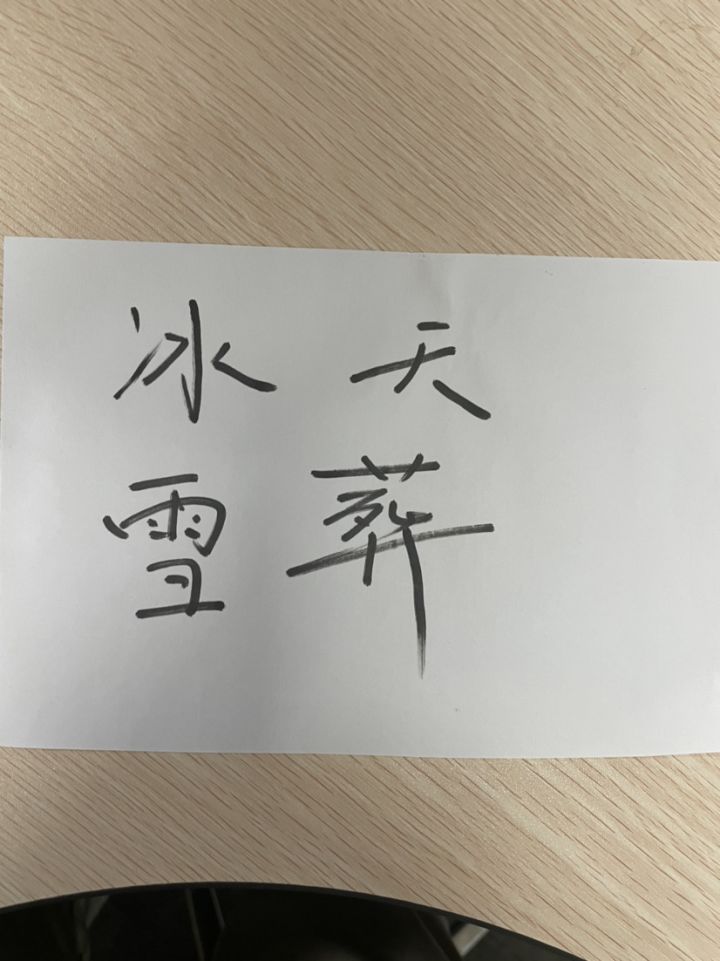 冰天
雪葬